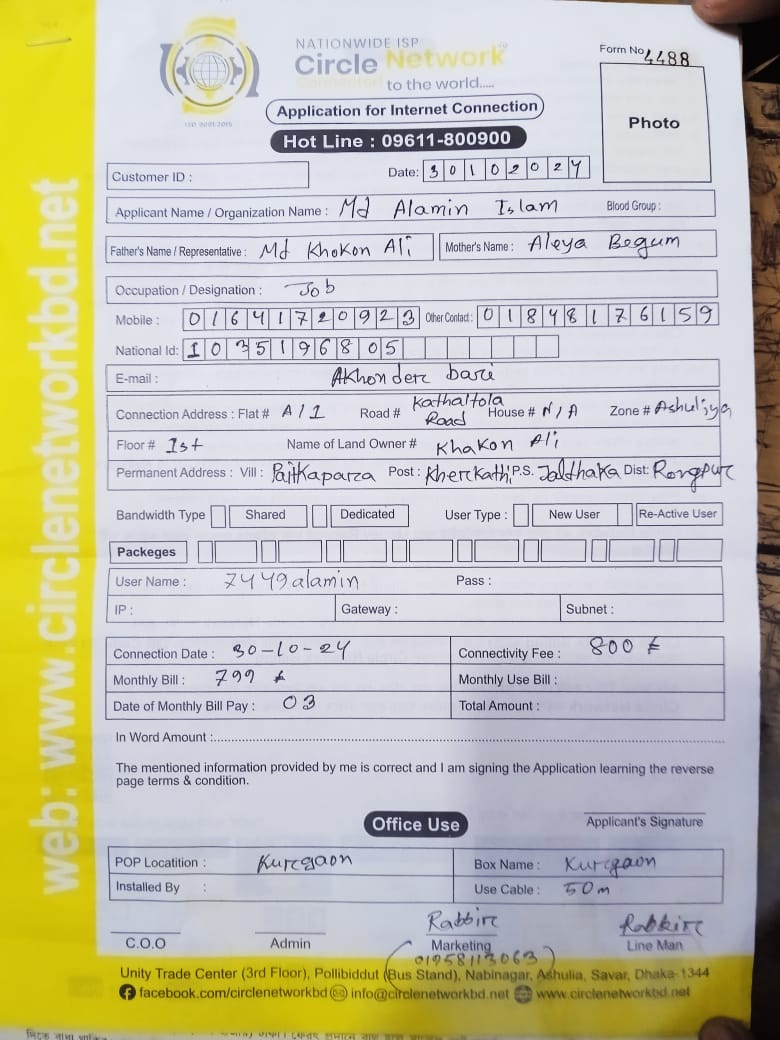 NATIONWIDE ISP
Circle Network
Connected to the world.....
ISO 9001:2015
Form No 4488
Application for Internet Connection
Hot Line : 09611-800900
Photo
Customer ID :
Date: 30102024
Applicant Name / Organization Name : Md Alamin Islam Blood Group :
Father's Name / Representative : Md Khokon Ali Mother's Name : Aleya Begum
Occupation / Designation : Job
Mobile : 01641720923 Other Contact : 01848176159
National Id: 1035196805
E-mail : Akhonder bari
Connection Address : Flat # A/1 Road # Kathaltola Road House # N/A Zone # Ashuliya
Floor # 1st Name of Land Owner # Khakon Ali
Permanent Address : Vill : Paitkapara Post : Kherkathi P.S. Jaldhaka Dist: Rongpur
Bandwidth Type Shared Dedicated User Type : New User Re-Active User
Packeges
User Name : 7449alamin Pass :
IP : Gateway : Subnet :
Connection Date : 30-10-24 Connectivity Fee : 800 ৳
Monthly Bill : 799 ৳ Monthly Use Bill :
Date of Monthly Bill Pay : 03 Total Amount :
In Word Amount :
The mentioned information provided by me is correct and I am signing the Application learning the reverse
page terms & condition.
Office Use
Applicant's Signature
POP Locatition : Kurgaon Box Name : Kurgaon
Installed By : Use Cable : 50m
Rabbir Rabbir
C.O.O Admin Marketing Line Man
01958113063
Unity Trade Center (3rd Floor), Pollibiddut (Bus Stand), Nabinagar, Ashulia, Savar, Dhaka-1344
facebook.com/circlenetworkbd info@circlenetworkbd.net www.circlenetworkbd.net
web: www.circlenetworkbd.net